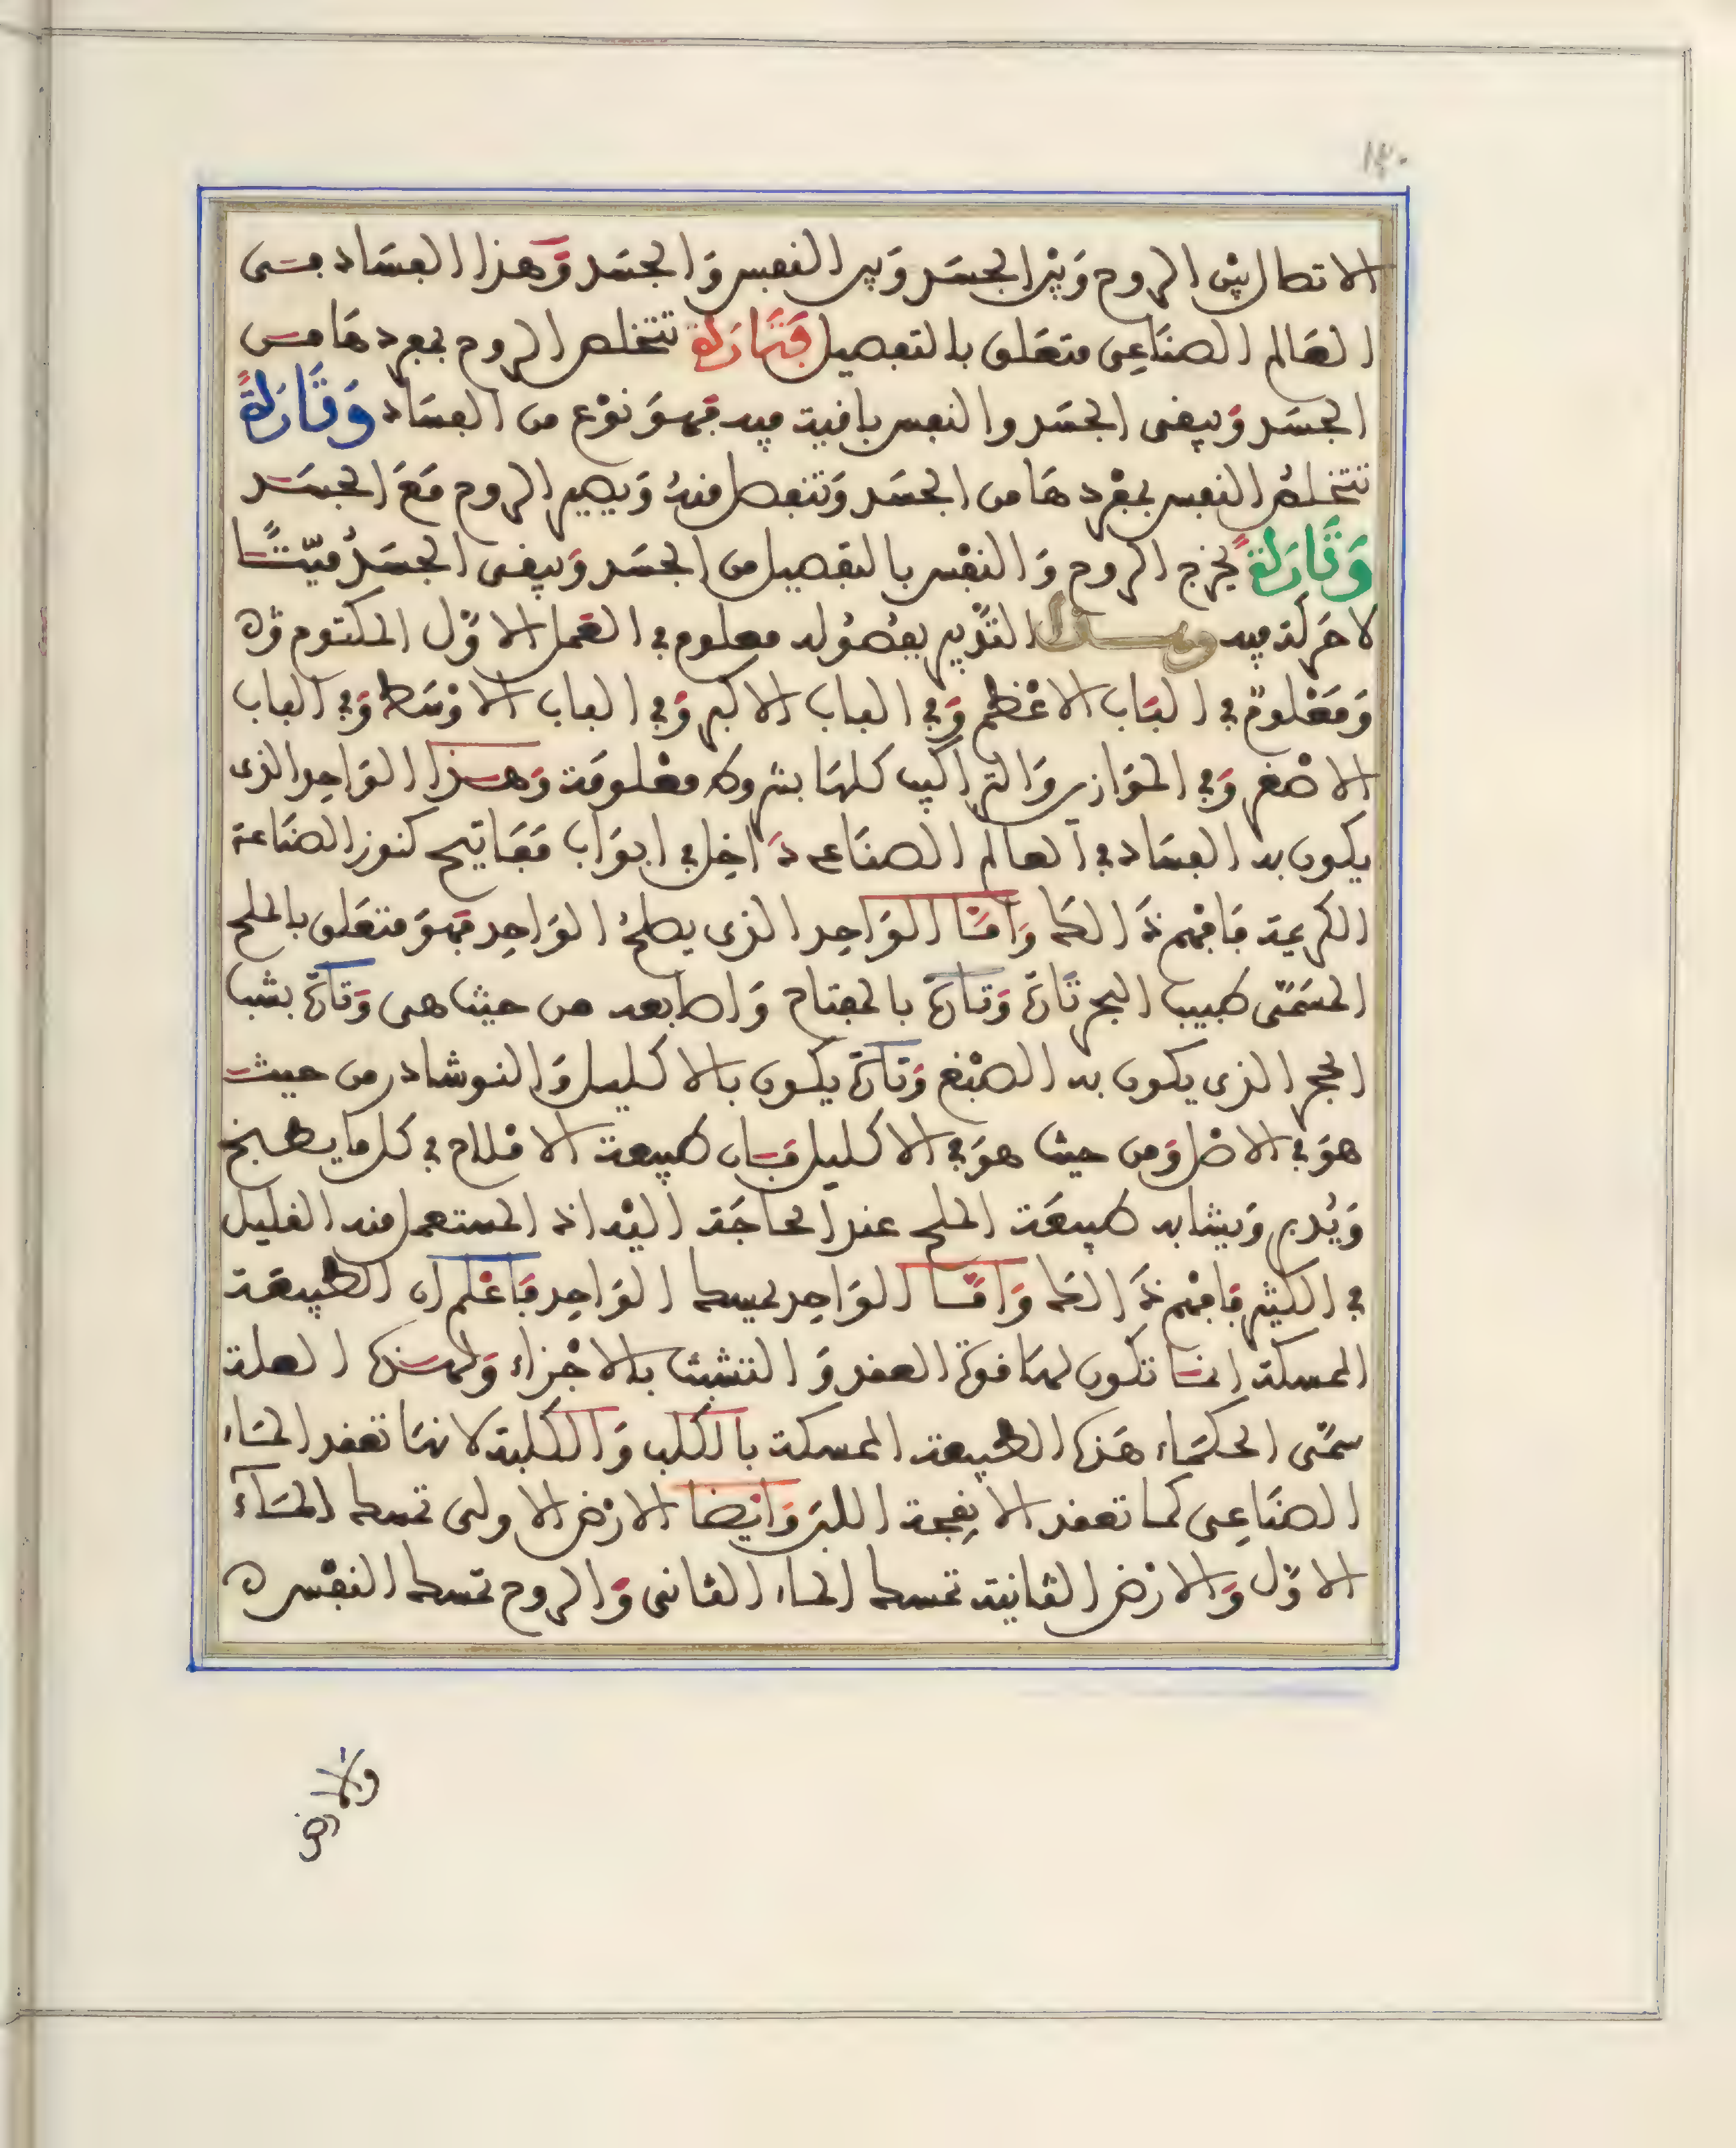 ١٣٠
الاتصال بين الروح وَبين الجسَد وَبين النفس وَالجسَد وَهذا الفسَاد في
العَالم الصنَاعِي متعَلق بالتفصيل فَتَارَةً تتخلص الروح بمفردهَا من
الجسَد وَيبقى الجسَد والنفس باقية فيه فهوَ نوْع من الفسَاد وَتَارَةً
تتخلصُ النفس بمفْردهَا من الجسَد وَتنفصل منهُ وَيصير الروح مَعَ الجسَد
وَتَارَةً يخرج الروح وَالنفْس بالتفصيل من الجسَد وَيبقى الجسَدُ ميّتًا
لا حَركة فيه وهذا التدْبير بفصُوله معلوم في العَمل الاوّل المكتوم
وَمَعْلومٌ في البَاب الاعْظم وَفي الباب الاكبر وَفي الباب الاوْسَط وَفي الباب
الاصْغر وَفي الموَازين وَالتراكيب كلهَا بشروط معْلومَة وَهذا الوَاحِد الذي
يكون به الفسَاد في العالم الصنَاعي دَاخِل في ابوَاب مَفَاتيح كنوز الصنَاعة
الكريمة فَافهم ذَالك وَامّا الوَاحِد الذي يصلحُ الوَاحِد فهوَ متعَلق بالملح
المسَمّى طبيب الحجر تَارَة وَتارَة بالمفتاح وَاصابعه من حيث هي وَتارَة بشب
الحجر الذي يكون به الصبْغ وَتارَة يكون بالاكليل وَالنوشادر من حيث
هوَ في الاصْل وَمن حيث هوَ في الاكليل فَان طبيعة الاملاح في كل ما يطبخ
وَيُدبر وَيشابه طبيعَة الملح عند الحاجَة اليْه اذ المستعمل منه القليل
في الكثير فَافهم ذَالك وَامّا الوَاحِد يمسك الوَاحِد فَاعْلم ان الطبيعَة
الممسكة انما تكون لهَا قوة العقد وَالتشبث بالاجْزاء وَلهذه العلة
سمّى الحكمَاء هَذه الطبيعة الممسكة بالكلب وَالكلبة لانهَا تعقد الماء
الصنَاعِي كما تعقد الانِفحة اللبن وَايْضا الارْض الاولى تمسك المَاء
الاوّل وَالارْض الثانية تمسك الماء الثاني وَالروح تمسك النفْس
والارض